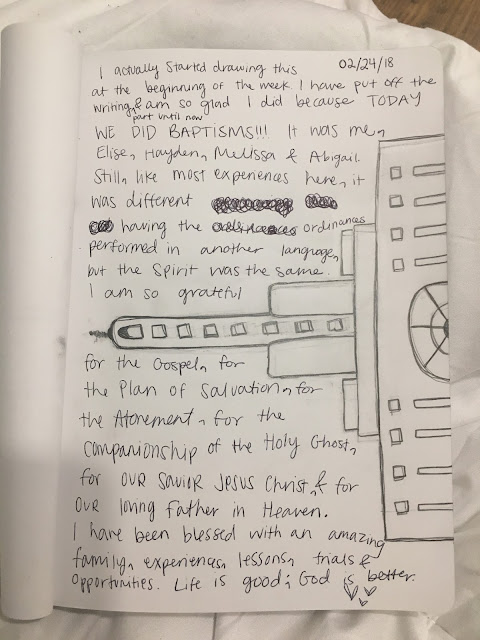 I actually started drawing this 02/24/18
at the beginning of the week I have put off the
writing, & am so glad I did because TODAY
part until now
WE DID BAPTISMS!!! It was me,
Elise, Hayden, Melissa & Abigail.
Still, like most experiences here, it
was different
having the ordinances
performed in another language,
but the Spirit was the same.
I am so grateful
for the Gospel, for
the Plan of Salvation, for
the Atonement, for the
Companionship of the Holy Ghost,
for our Savior Jesus Christ, & for
our loving Father in Heaven.
I have been blessed with an amazing
family, experiences, lessons, trials &
opportunities. Life is good; God is better.